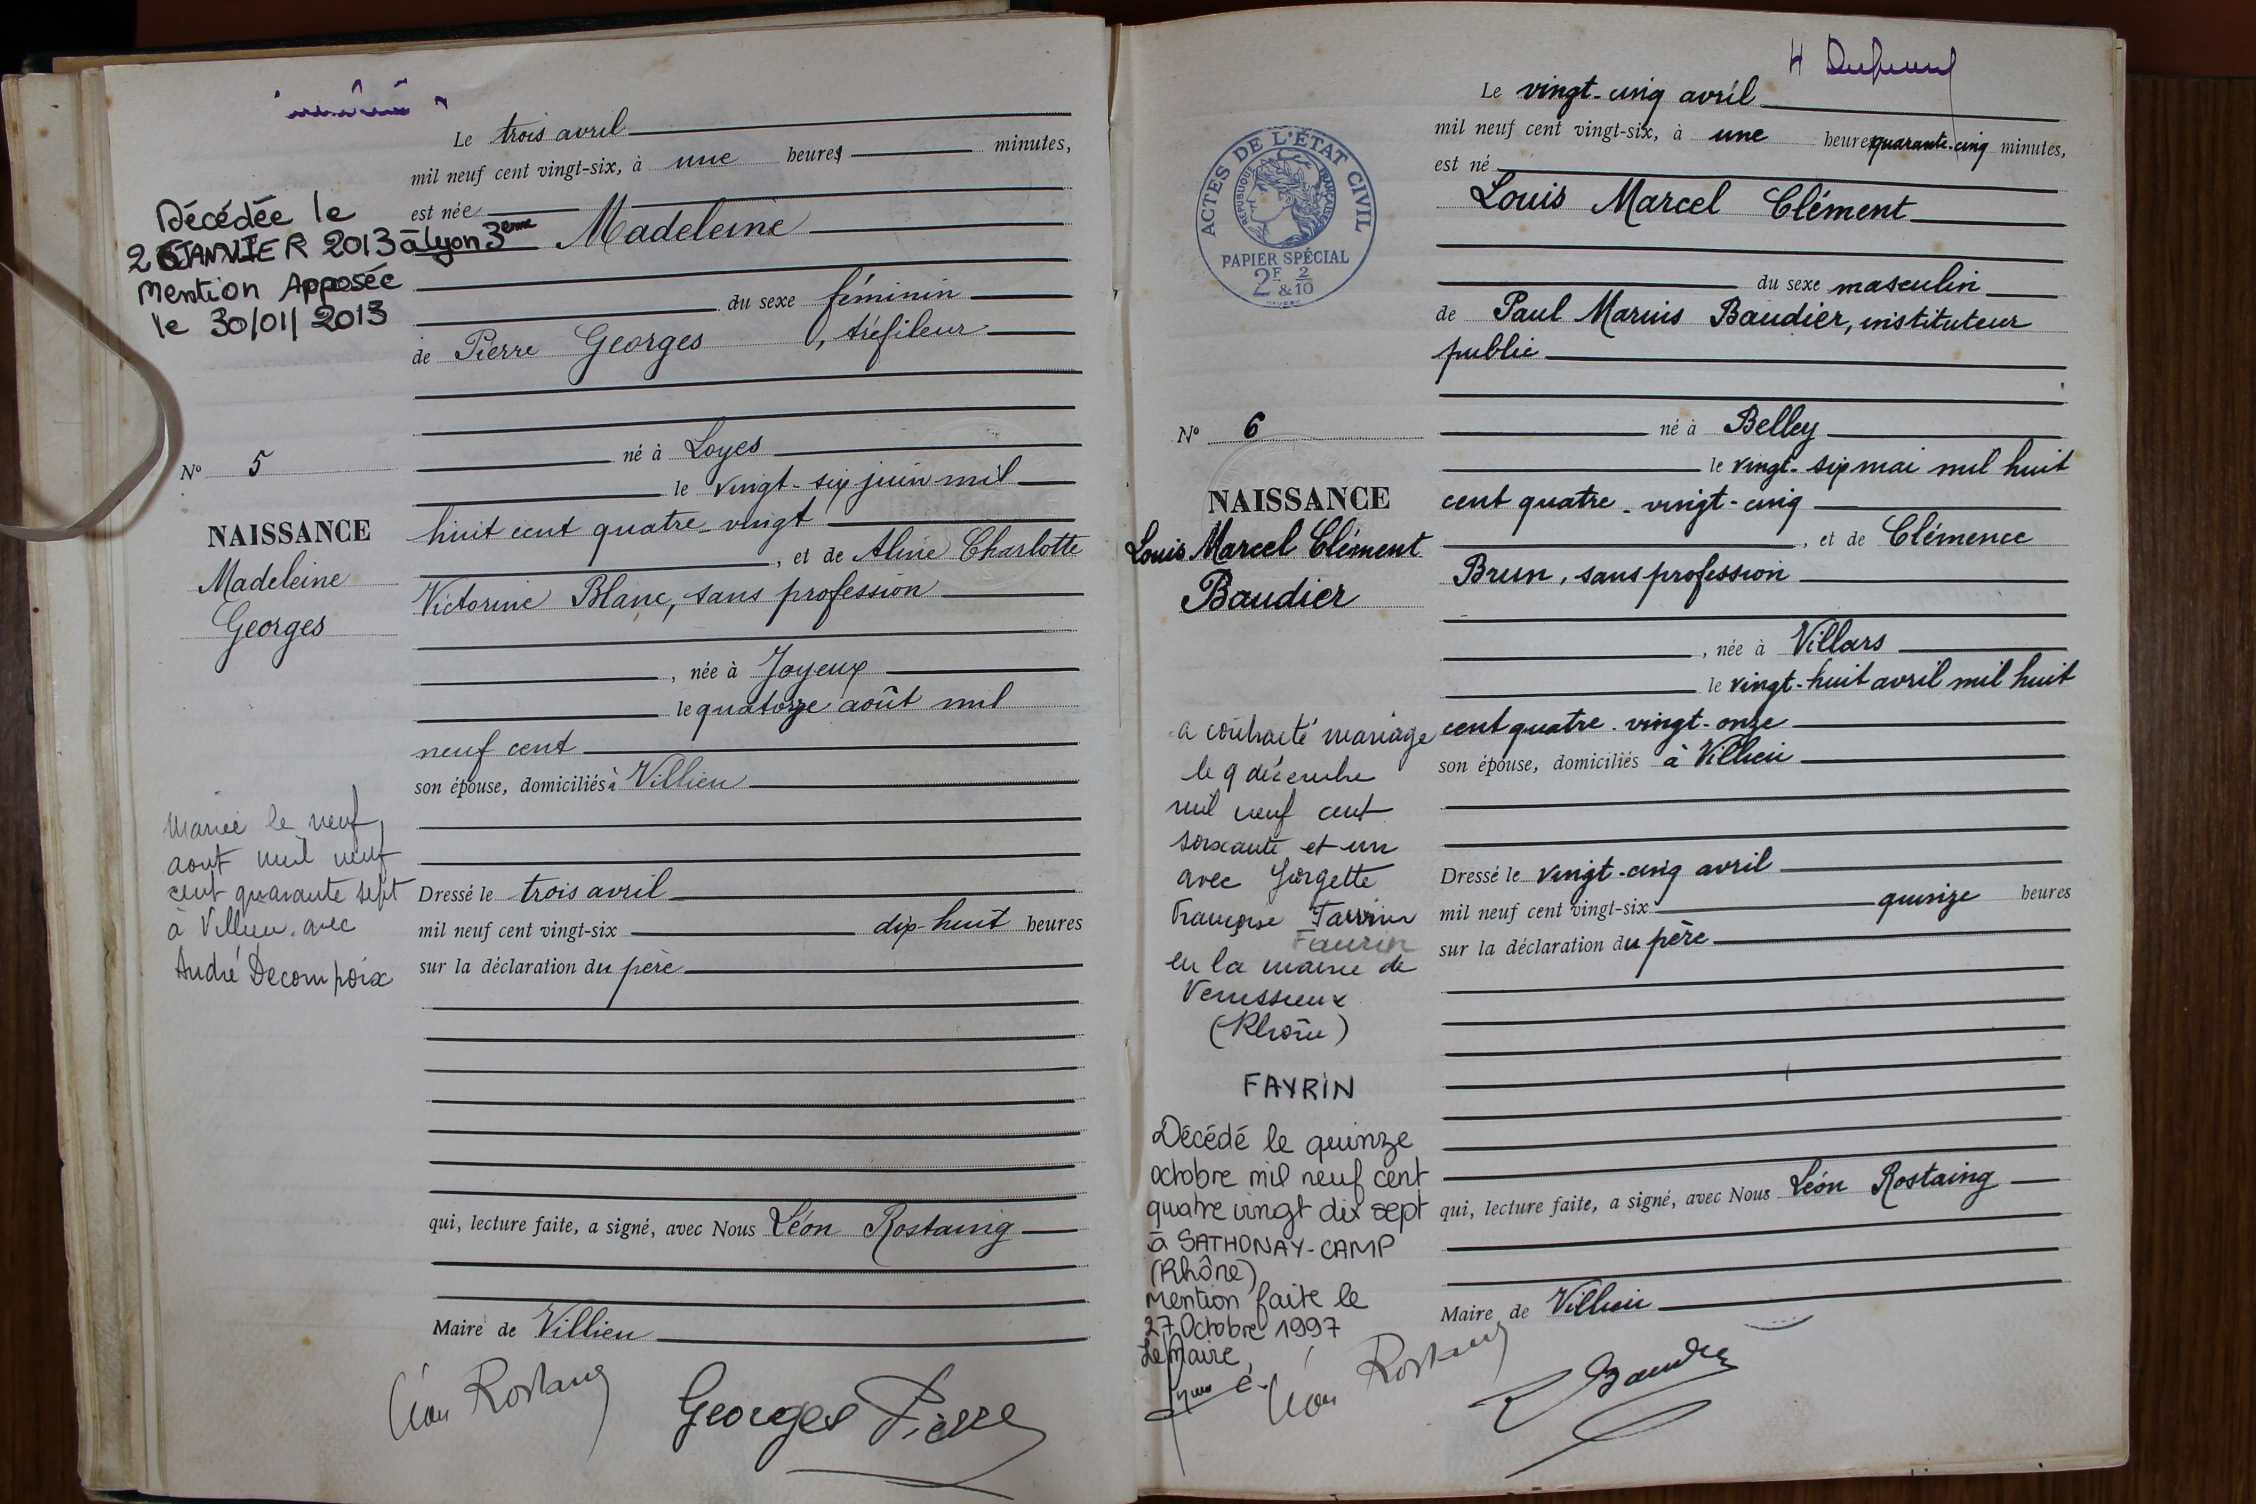 Le trois avril
mil neuf cent vingt-six, à une heures minutes,
est née
Madeleine
du sexe féminin
de Pierre Georges, tréfileur
né à Loyes
le vingt-six juin mil
huit cent quatre-vingt
, et de Aline Charlotte
Victorine Blanc, sans profession
, née à Joyeux
le quatorze août mil
neuf cent
son épouse, domiciliés à Villieu
Dressé le trois avril
mil neuf cent vingt-six dix-huit heures
sur la déclaration du père
qui, lecture faite, a signé, avec Nous Léon Rostaing
Maire de Villieu
Léon Rostaing
Georges Pierre
Décédée le
JANVIER 2013 à Lyon 3ème
Mention Apposée
le 30/01/2013
No 5
NAISSANCE
Madeleine
Georges
Mariée le neuf
aout mil neuf
cent quarante sept
à Villieu avec
André Decompoix
Le vingt-cinq avril
mil neuf cent vingt-six, à une heures quarante-cinq minutes,
est né
Louis Marcel Clément
du sexe masculin
de Paul Marius Baudier, instituteur
public
né à Belley
le vingt-six mai mil huit
cent quatre-vingt-cinq
, et de Clémence
Brun, sans profession
, née à Villars
le vingt-huit avril mil huit
cent quatre-vingt-onze
son épouse, domiciliés à Villieu
Dressé le vingt-cinq avril
mil neuf cent vingt-six quinze heures
sur la déclaration du père
qui, lecture faite, a signé, avec Nous Léon Rostaing
Maire de Villieu
Léon Rostaing
Baudier
ACTES DE L'ÉTAT CIVIL
RÉPUBLIQUE FRANÇAISE
PAPIER SPÉCIAL
2F & 2/10
No 6
NAISSANCE
Louis Marcel Clément
Baudier
a contracté mariage
le 9 décembre
mil neuf cent
soixante et un
avec Georgette
Françoise
en la mairie de
Venissieux
(Rhône)
FAYRIN
Décédé le quinze
octobre mil neuf cent
quatre vingt dix sept
à SATHONAY-CAMP
(Rhône)
Mention faite le
27 Octobre 1997
Le Maire,